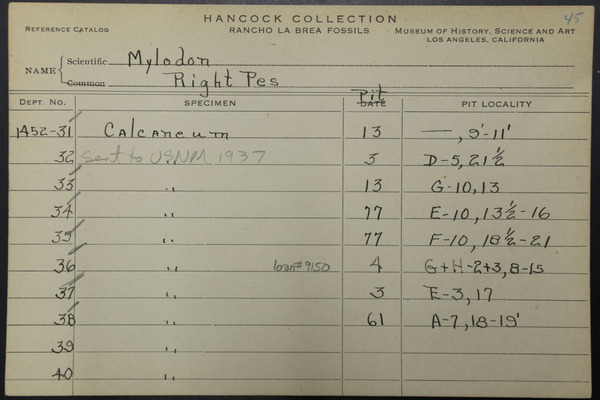 45
HANCOCK COLLECTION
REFERENCE CATALOG RANCHO LA BREA FOSSILS MUSEUM OF HISTORY, SCIENCE AND ART
LOS ANGELES, CALIFORNIA
NAME { Scientific Mylodon
Common Right Pes
DEPT. NO. SPECIMEN Pit DATE PIT LOCALITY
1452-31 Calcaneum 13 —, 9'-11'
32 Sent to USNM 1937 " 3 D-5, 21½
33 " 13 G-10, 13
34 " 77 E-10, 13½-16
35 " 77 F-10, 18½-21
36 " loan#9150 4 G+H-2+3, 8-15
37 " 3 E-3, 17
38 " 61 A-7, 18-19'
39 "
40 "